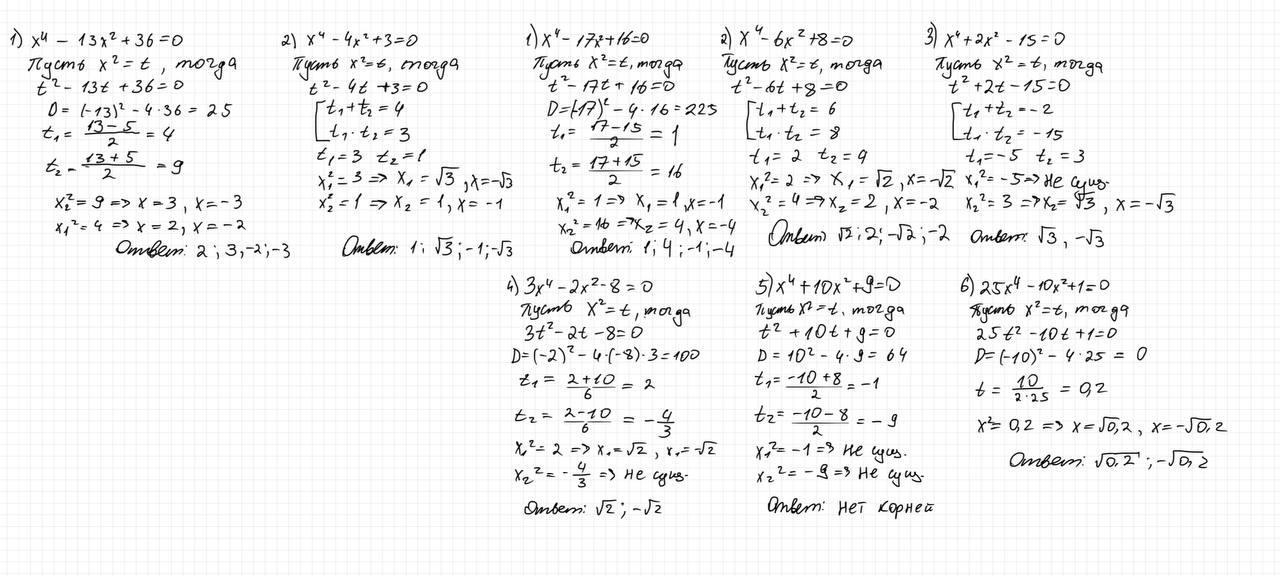 1) x⁴ − 13x² + 36 = 0
Пусть x² = t, тогда
t² − 13t + 36 = 0
D = (−13)² − 4·36 = 25
t₁ = (13−5)/2 = 4
t₂ = (13+5)/2 = 9
x₂² = 9 => x = 3, x = −3
x₁² = 4 => x = 2, x = −2
Ответ: 2; 3, −2; −3
2) x⁴ − 4x² + 3 = 0
Пусть x² = t, тогда
t² − 4t + 3 = 0
[t₁ + t₂ = 4
t₁ · t₂ = 3
t₁ = 3 t₂ = 1
x₁² = 3 => x₁ = √3, x = −√3
x₂² = 1 => x₂ = 1, x = −1
Ответ: 1; √3; −1; −√3
1) x⁴ − 17x² + 16 = 0
Пусть x² = t, тогда
t² − 17t + 16 = 0
D = (−17)² − 4·16 = 225
t₁ = (17−15)/2 = 1
t₂ = (17+15)/2 = 16
x₁² = 1 => x₁ = 1, x = −1
x₂² = 16 => x₂ = 4, x = −4
Ответ: 1; 4; −1; −4
2) x⁴ − 6x² + 8 = 0
Пусть x² = t, тогда
t² − 6t + 8 = 0
[t₁ + t₂ = 6
t₁ · t₂ = 8
t₁ = 2 t₂ = 4
x₁² = 2 => x₁ = √2, x = −√2
x₂² = 4 => x₂ = 2, x = −2
Ответ: √2; 2; −√2; −2
3) x⁴ + 2x² − 15 = 0
Пусть x² = t, тогда
t² + 2t − 15 = 0
[t₁ + t₂ = −2
t₁ · t₂ = −15
t₁ = −5 t₂ = 3
x₁² = −5 => Не сущ.
x₂² = 3 => x₂ = √3, x = −√3
Ответ: √3, −√3
4) 3x⁴ − 2x² − 8 = 0
Пусть x² = t, тогда
3t² − 2t − 8 = 0
D = (−2)² − 4·(−8)·3 = 100
t₁ = (2+10)/6 = 2
t₂ = (2−10)/6 = −4/3
x₁² = 2 => x₁ = √2, x₁ = −√2
x₂² = −4/3 => Не сущ.
Ответ: √2; −√2
5) x⁴ + 10x² + 9 = 0
Пусть x² = t, тогда
t² + 10t + 9 = 0
D = 10² − 4·9 = 64
t₁ = (−10+8)/2 = −1
t₂ = (−10−8)/2 = −9
x₁² = −1 => Не сущ.
x₂² = −9 => Не сущ.
Ответ: нет корней
6) 25x⁴ − 10x² + 1 = 0
Пусть x² = t, тогда
25t² − 10t + 1 = 0
D = (−10)² − 4·25 = 0
t = 10/(2·25) = 0,2
x² = 0,2 => x = √0,2, x = −√0,2
Ответ: √0,2; −√0,2